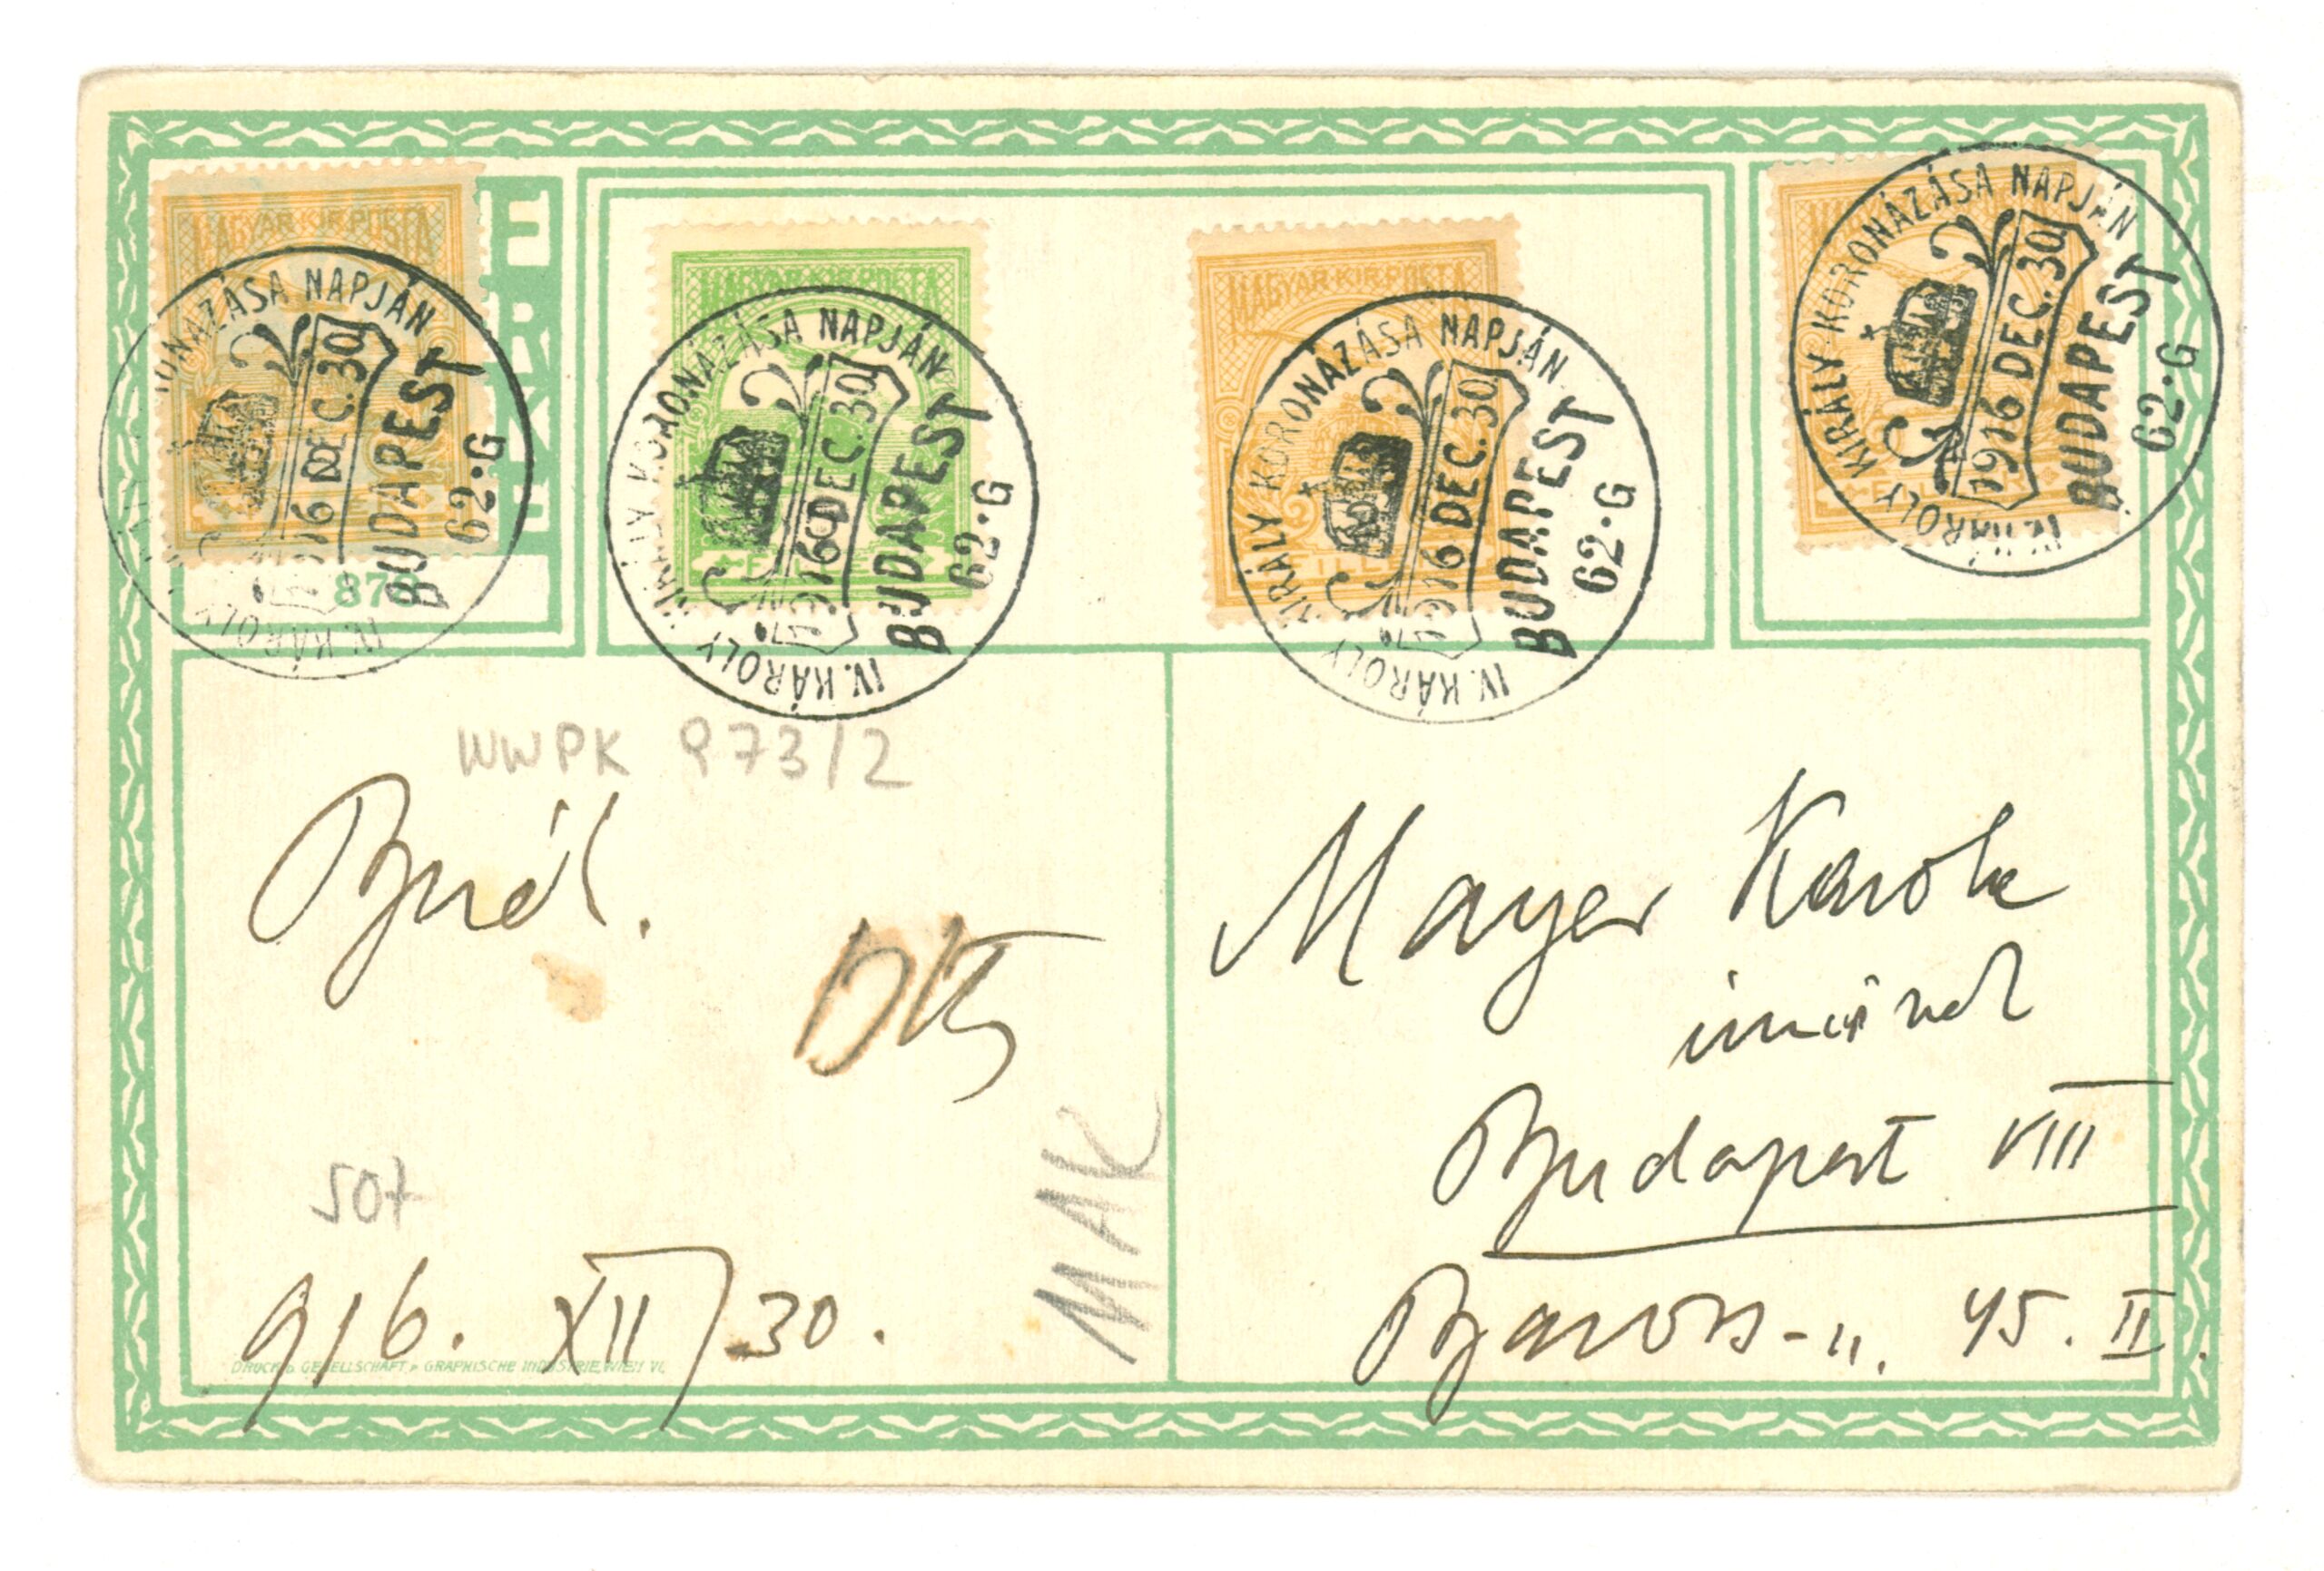 MAGYAR·KIR·POSTA
MAGYAR·KIR·POSTA
MAGYAR·KIR·POSTA
ONÁZÁSA NAPJÁN
16 DEC. 30
BUDAPEST
62·G
IV. KÁROLY
IV. KÁROLY KIRÁLY KORONÁZÁSA NAPJÁN
1916 DEC. 30
BUDAPEST
62·G
IV. KÁROLY KIRÁLY KORONÁZÁSA NAPJÁN
1916 DEC. 30
BUDAPEST
62·G
IV. KÁROLY KIRÁLY KORONÁZÁSA NAPJÁN
1916 DEC. 30
BUDAPEST
62·G
WWPK 973/2
507
916. XII/30.
MAK
DRUCK: GESELLSCHAFT F. GRAPHISCHE INDUSTRIE, WIEN VI.
Mayer Karola
Budapest VIII
Baross-u. 45. II.